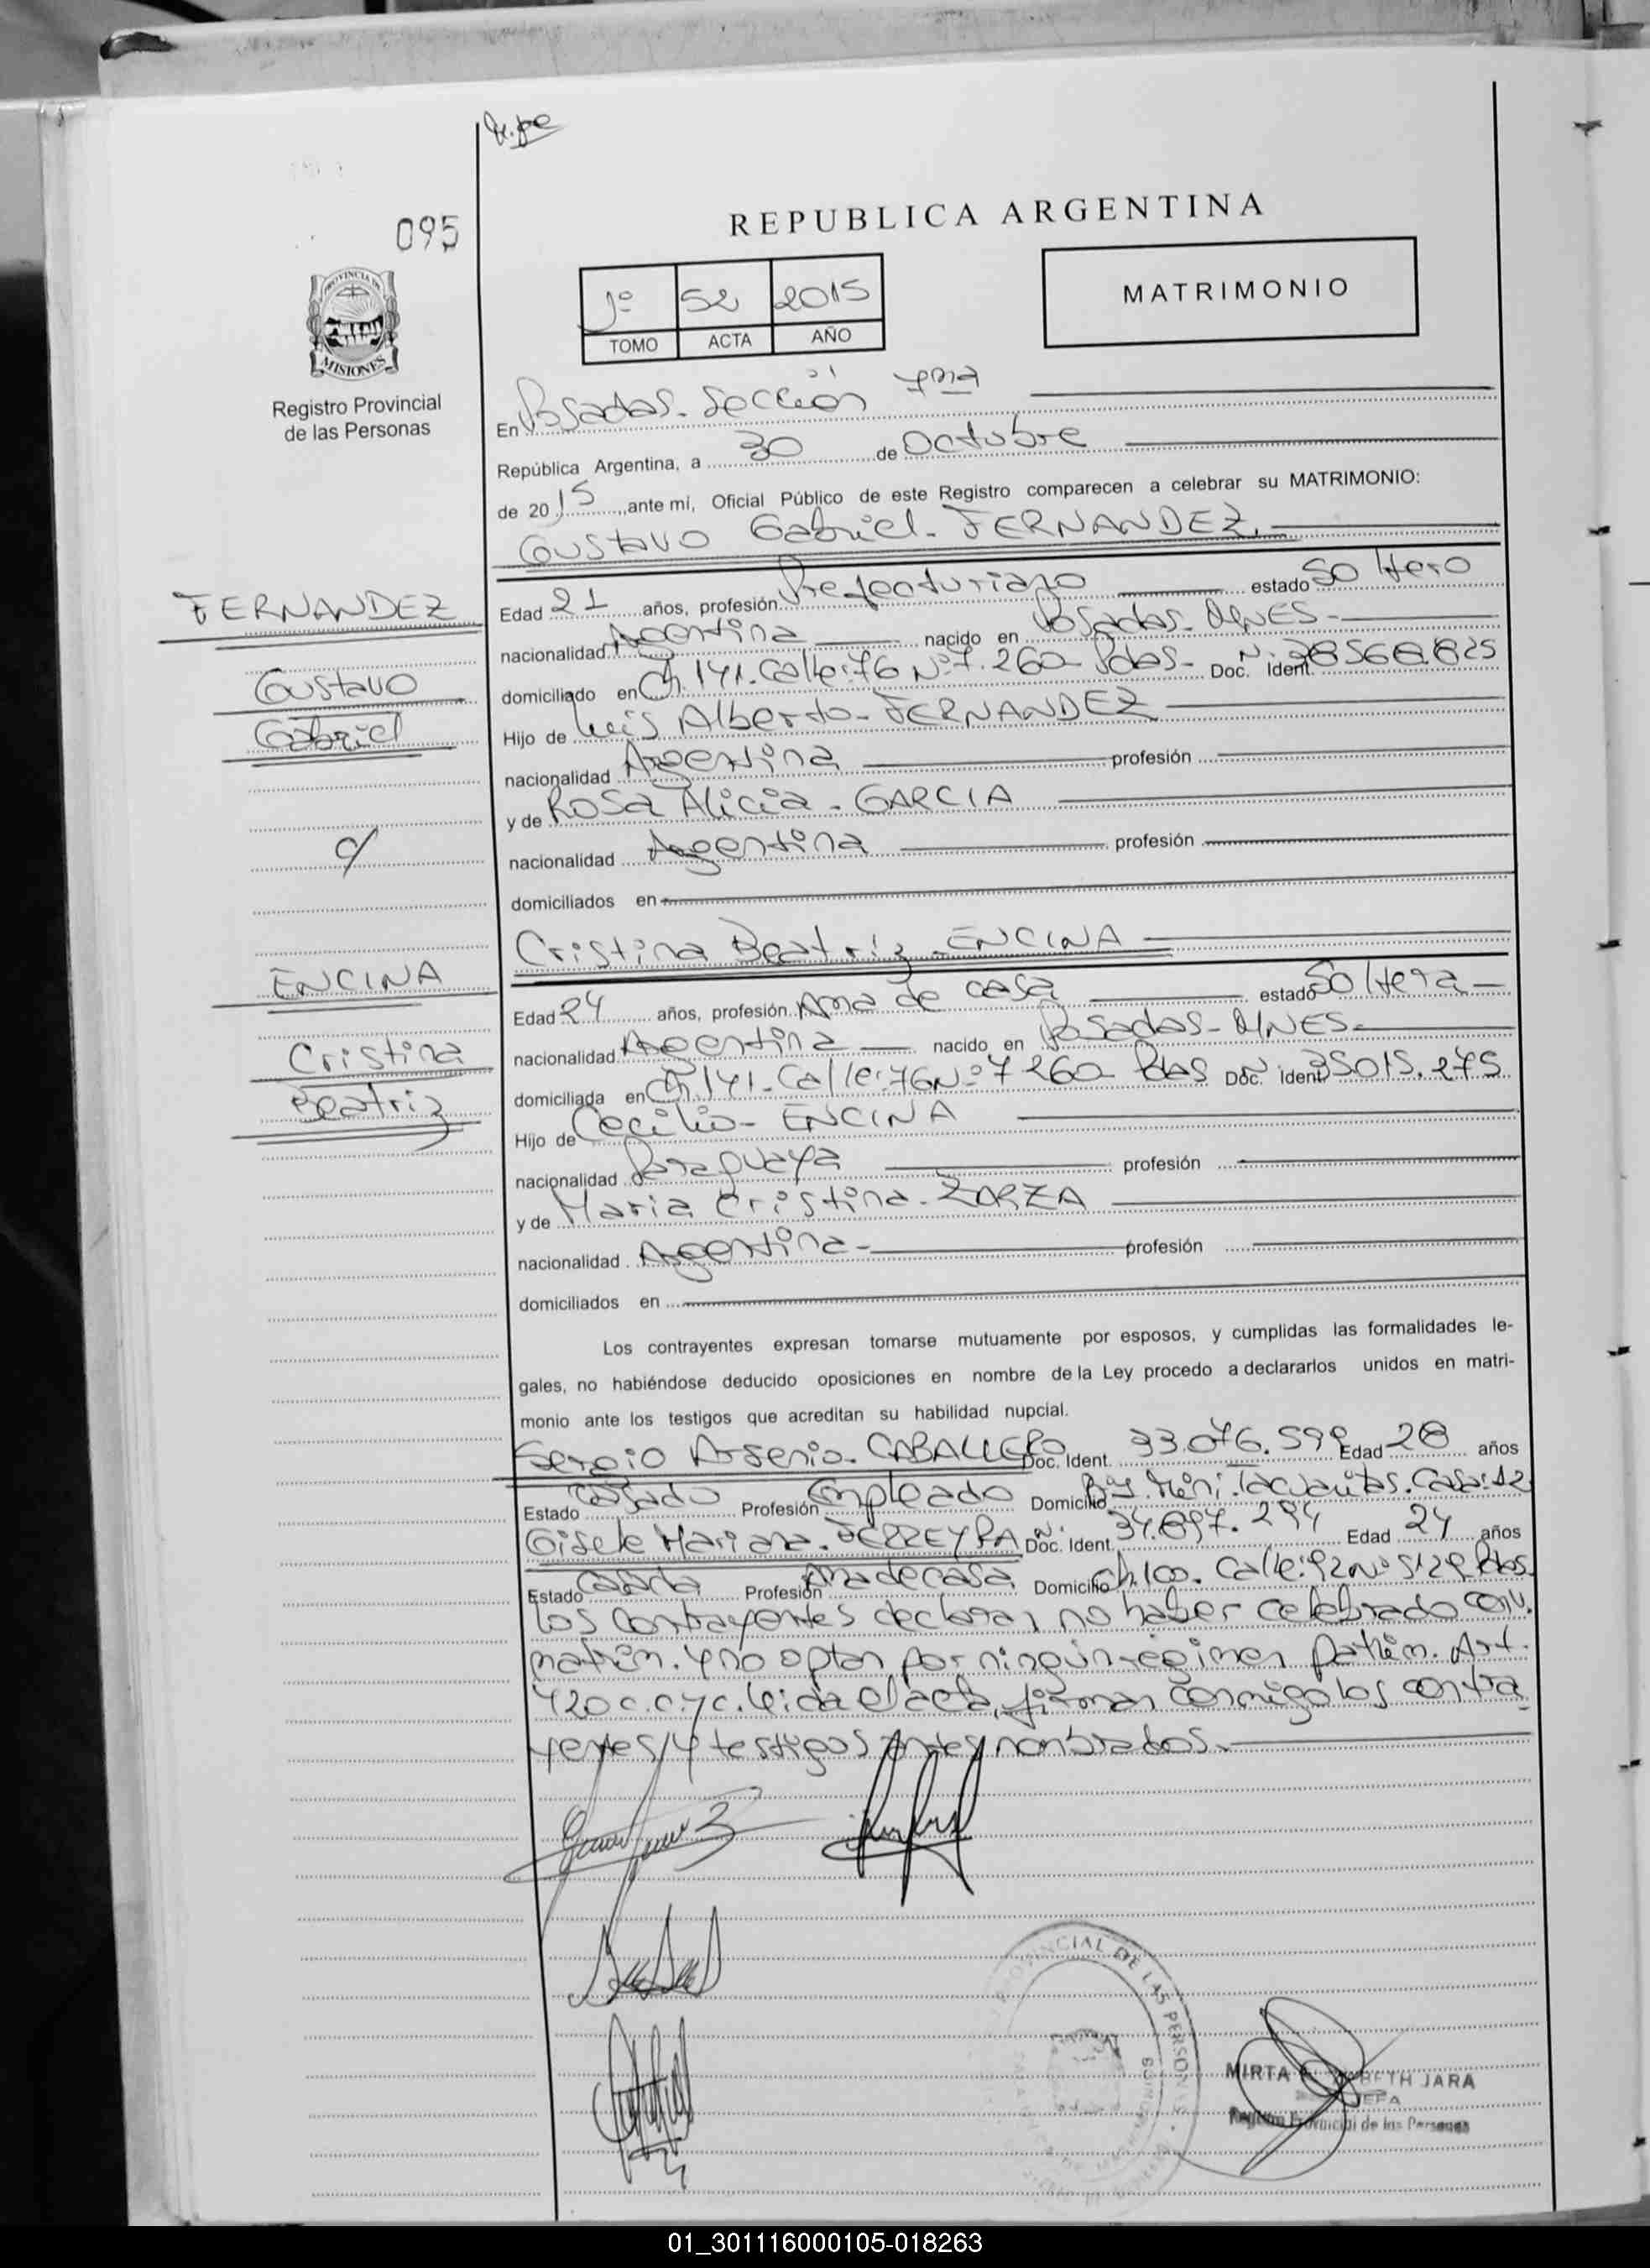 095
PROVINCIA DE
MISIONES
Registro Provincial
de las Personas
REPUBLICA ARGENTINA
1º 52 2015
TOMO ACTA AÑO
MATRIMONIO
En Posadas. Sección 7ma
República Argentina, a 30 de Octubre
de 2015, ante mi, Oficial Público de este Registro comparecen a celebrar su MATRIMONIO:
Gustavo Gabriel - FERNANDEZ.
FERNANDEZ
Gustavo
Gabriel
c/
ENCINA
Cristina
Beatriz
Edad 21 años, profesión Prefecturiano estado Soltero
nacionalidad Argentina nacido en Posadas - MNES -
domiciliado en Ch. 141. Calle: 76 Nº 7.260 - Pdas - Doc. Ident. Nº 38568.825
Hijo de Luis Alberto - FERNANDEZ
nacionalidad Argentina profesión
y de Rosa Alicia - GARCIA
nacionalidad Argentina profesión
domiciliados en
Cristina Beatriz - ENCINA
Edad 24 años, profesión Ama de casa estado Soltera -
nacionalidad Argentina nacido en Posadas - MNES -
domiciliada en Ch. 141 - Calle: 76 Nº 7 260 - Pdas Doc. Ident. 35015.275
Hijo de Cecilio - ENCINA
nacionalidad Paraguaya profesión
y de Maria Cristina - ZARZA
nacionalidad Argentina - profesión
domiciliados en
Los contrayentes expresan tomarse mutuamente por esposos, y cumplidas las formalidades le-
gales, no habiéndose deducido oposiciones en nombre de la Ley procedo a declararlos unidos en matri-
monio ante los testigos que acreditan su habilidad nupcial.
Sergio Arsenio - CABALLERO Doc. Ident. 33.076.599 Edad 28 años
Estado Casado Profesión Empleado Domicilio Bº Y. Mini. Tacuaritas. Casa: 12
Gisele Mariana - FERREYRA Doc. Ident. Nº 34.897.294 Edad 24 años
Estado Casada Profesión Ama de casa Domicilio Ch. 100. Calle: 92 Nº 5129 Pdas.
Los contrayentes declaran no haber celebrado conv.
matrim. y no optan por ningún regimen patrim. Art.
420 c.c.yc. Leida el acta, firman conmigo los contra
yentes/y testigos antes nombrados. -
PROVINCIAL DE LAS PERSONAS
MIRTA JARA
JEFA
Registro Provincial de las Personas
01_301116000105-018263